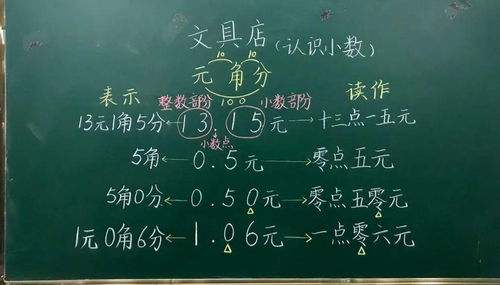 文具店(认识小数)
10 10
元 角 分
100
表示 整数部分 小数部分 读作
13元1角5分 13.15元 十三点一五元
小数点
5角 0.5元 零点五元
5角0分 0.50元 零点五零元
1元0角6分 1.06元 一点零六元